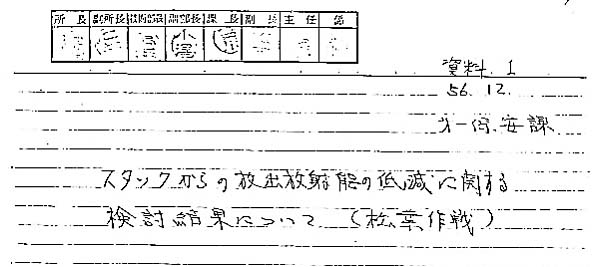 所長 副所長 技術部長 副部長 課長 副長 主任 係
資料.1
56.12.
オ一保.安課
スタックからの放出放射能の低減に関する
検討結果について（松葉作戦）